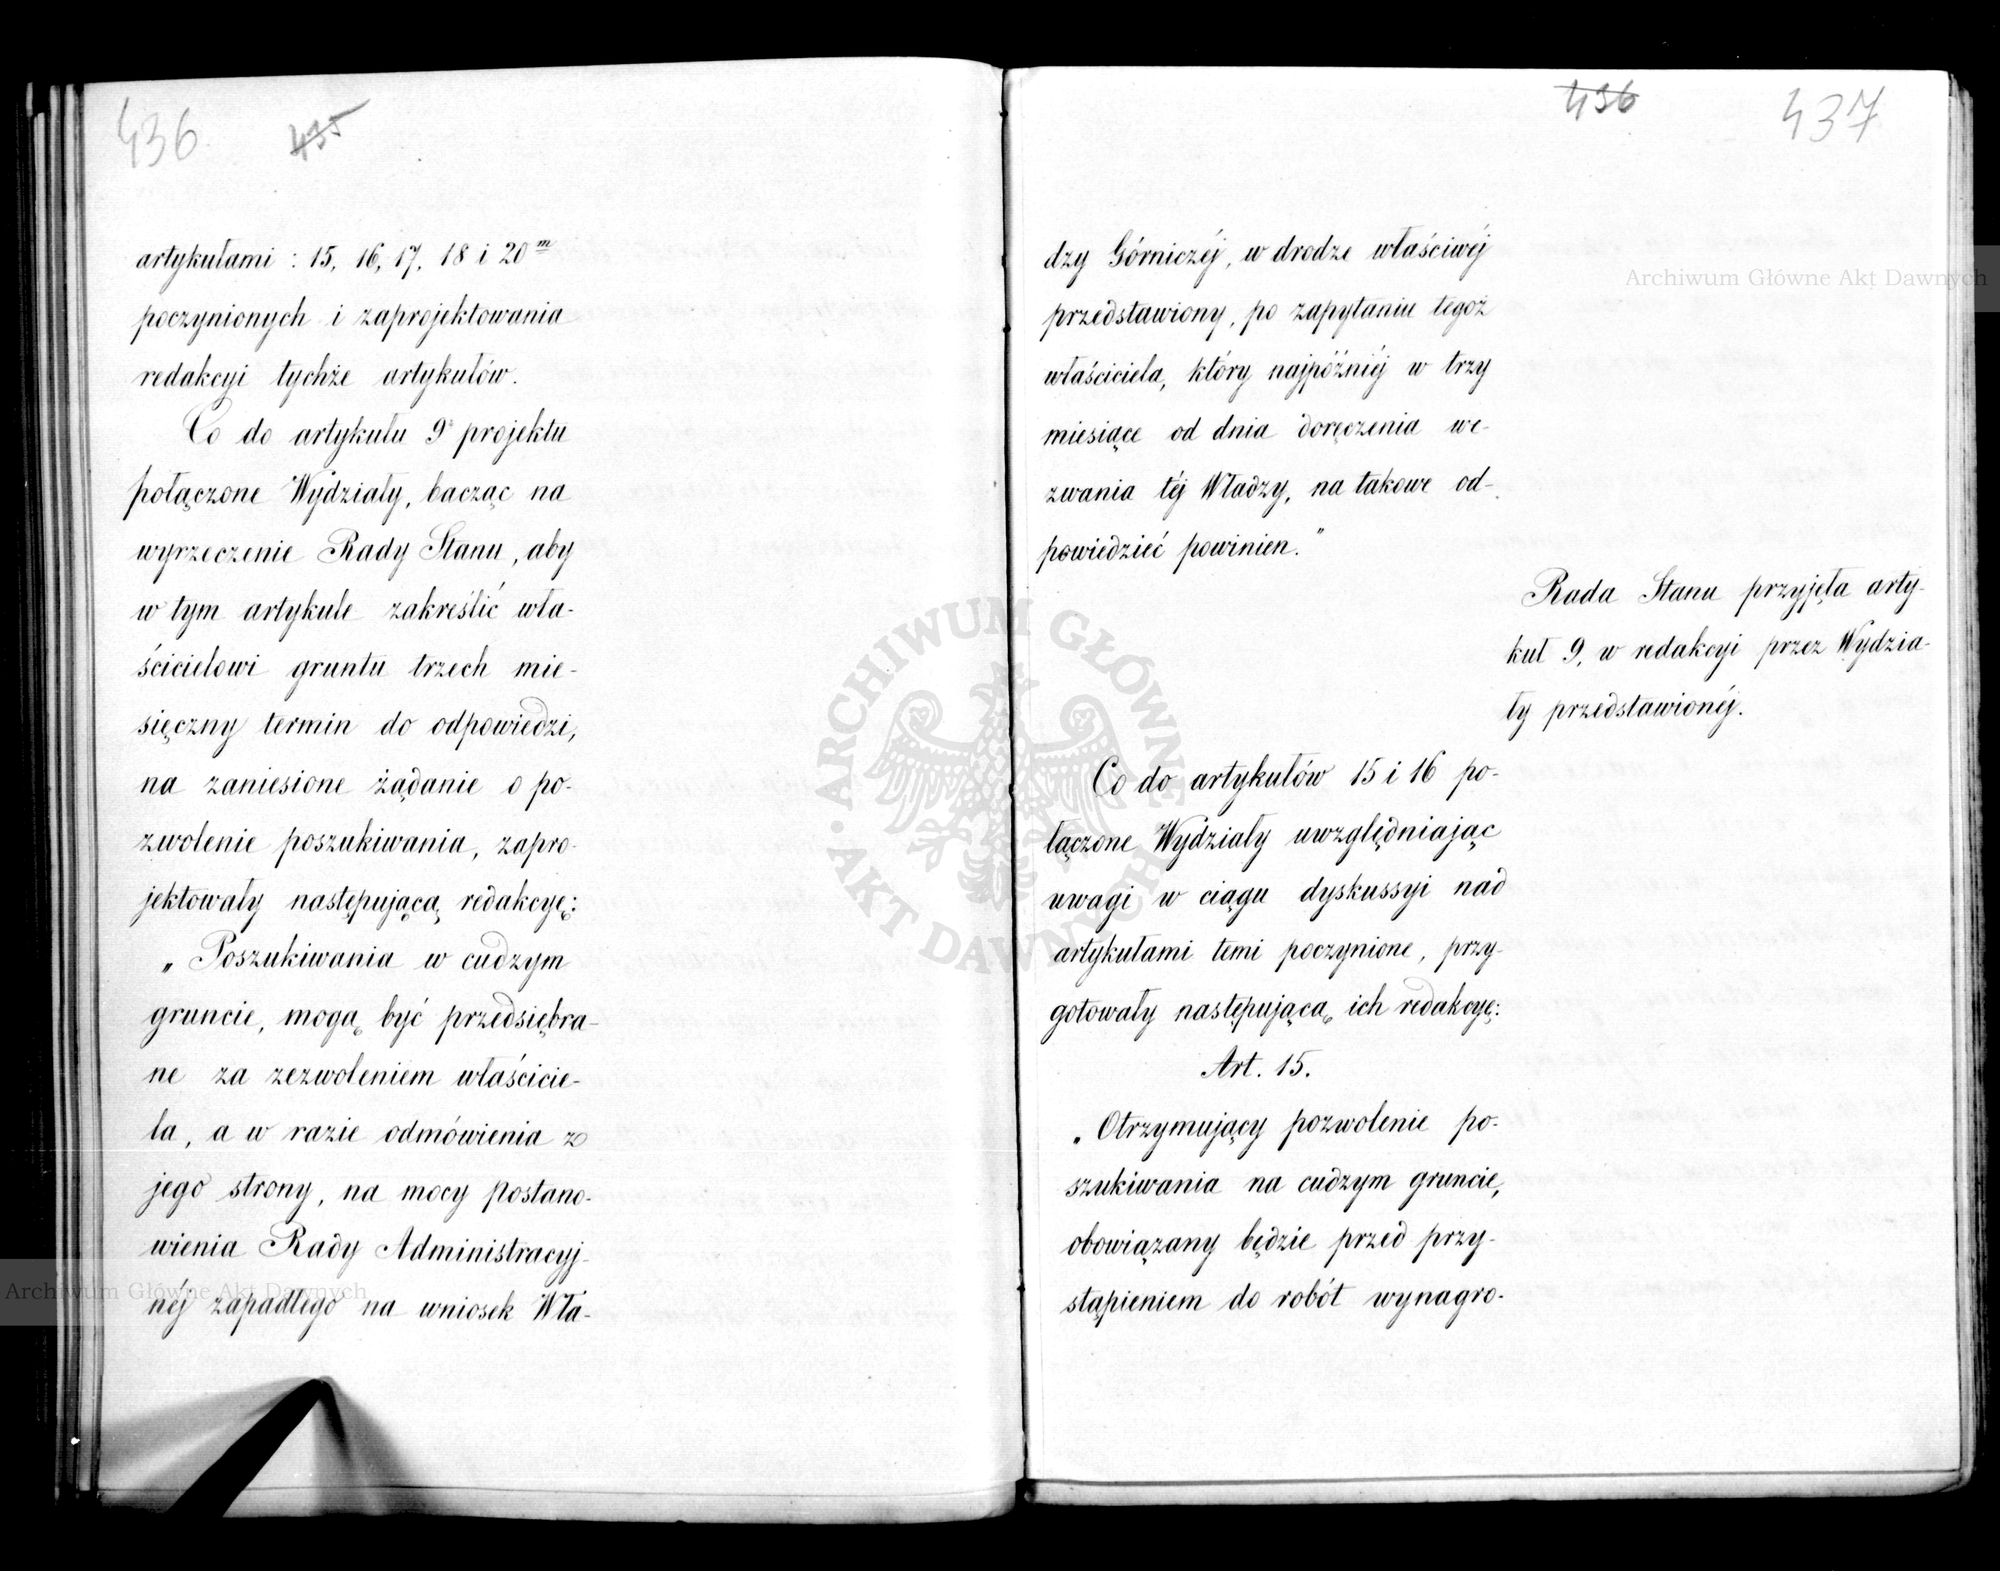 436
435
artykułami : 15, 16, 17, 18 i 20m
poczynionych i zaprojektowania
redakcyi tychże artykułów.
Co do artykułu 9 projektu
połączone Wydziały, bacząc na
wyrzeczenie Rady Stanu, aby
w tym artykule zakreślić wła-
ścicielowi gruntu trzech mie-
sięczny termin do odpowiedzi,
na zaniesione żądanie o po-
zwolenie poszukiwania, zapro-
jektowały następującą redakcyę:
„Poszukiwania w cudzym
gruncie, mogą być przedsiębra-
ne za zezwoleniem właścicie-
la, a w razie odmówienia z
jego strony, na mocy postano-
wienia Rady Administracyj-
néj zapadłego na wniosek Wła-
436
437
dzy Górniczéj, w drodze właściwéj
przedstawiony, po zapytaniu tegoż
właściciela, który najpóźniéj w trzy
miesiące od dnia doręczenia we-
zwania téj Władzy, na takowe od-
powiedzieć powinien."
Rada Stanu przyjęła arty-
kuł 9, w redakcyi przez Wydzia-
ły przedstawionéj.
Co do artykułów 15 i 16 po-
łączone Wydziały uwzględniając
uwagi w ciągu dyskussyi nad
artykułami temi poczynione, przy-
gotowały następującą ich redakcyę:
Art. 15.
„Otrzymujący pozwolenie po-
szukiwania na cudzym gruncie,
obowiązany będzie przed przy-
stąpieniem do robót wynagro-
Archiwum Główne Akt Dawnych
Archiwum Główne Akt Dawnych
ARCHIWUM GŁÓWNE AKT DAWNYCH